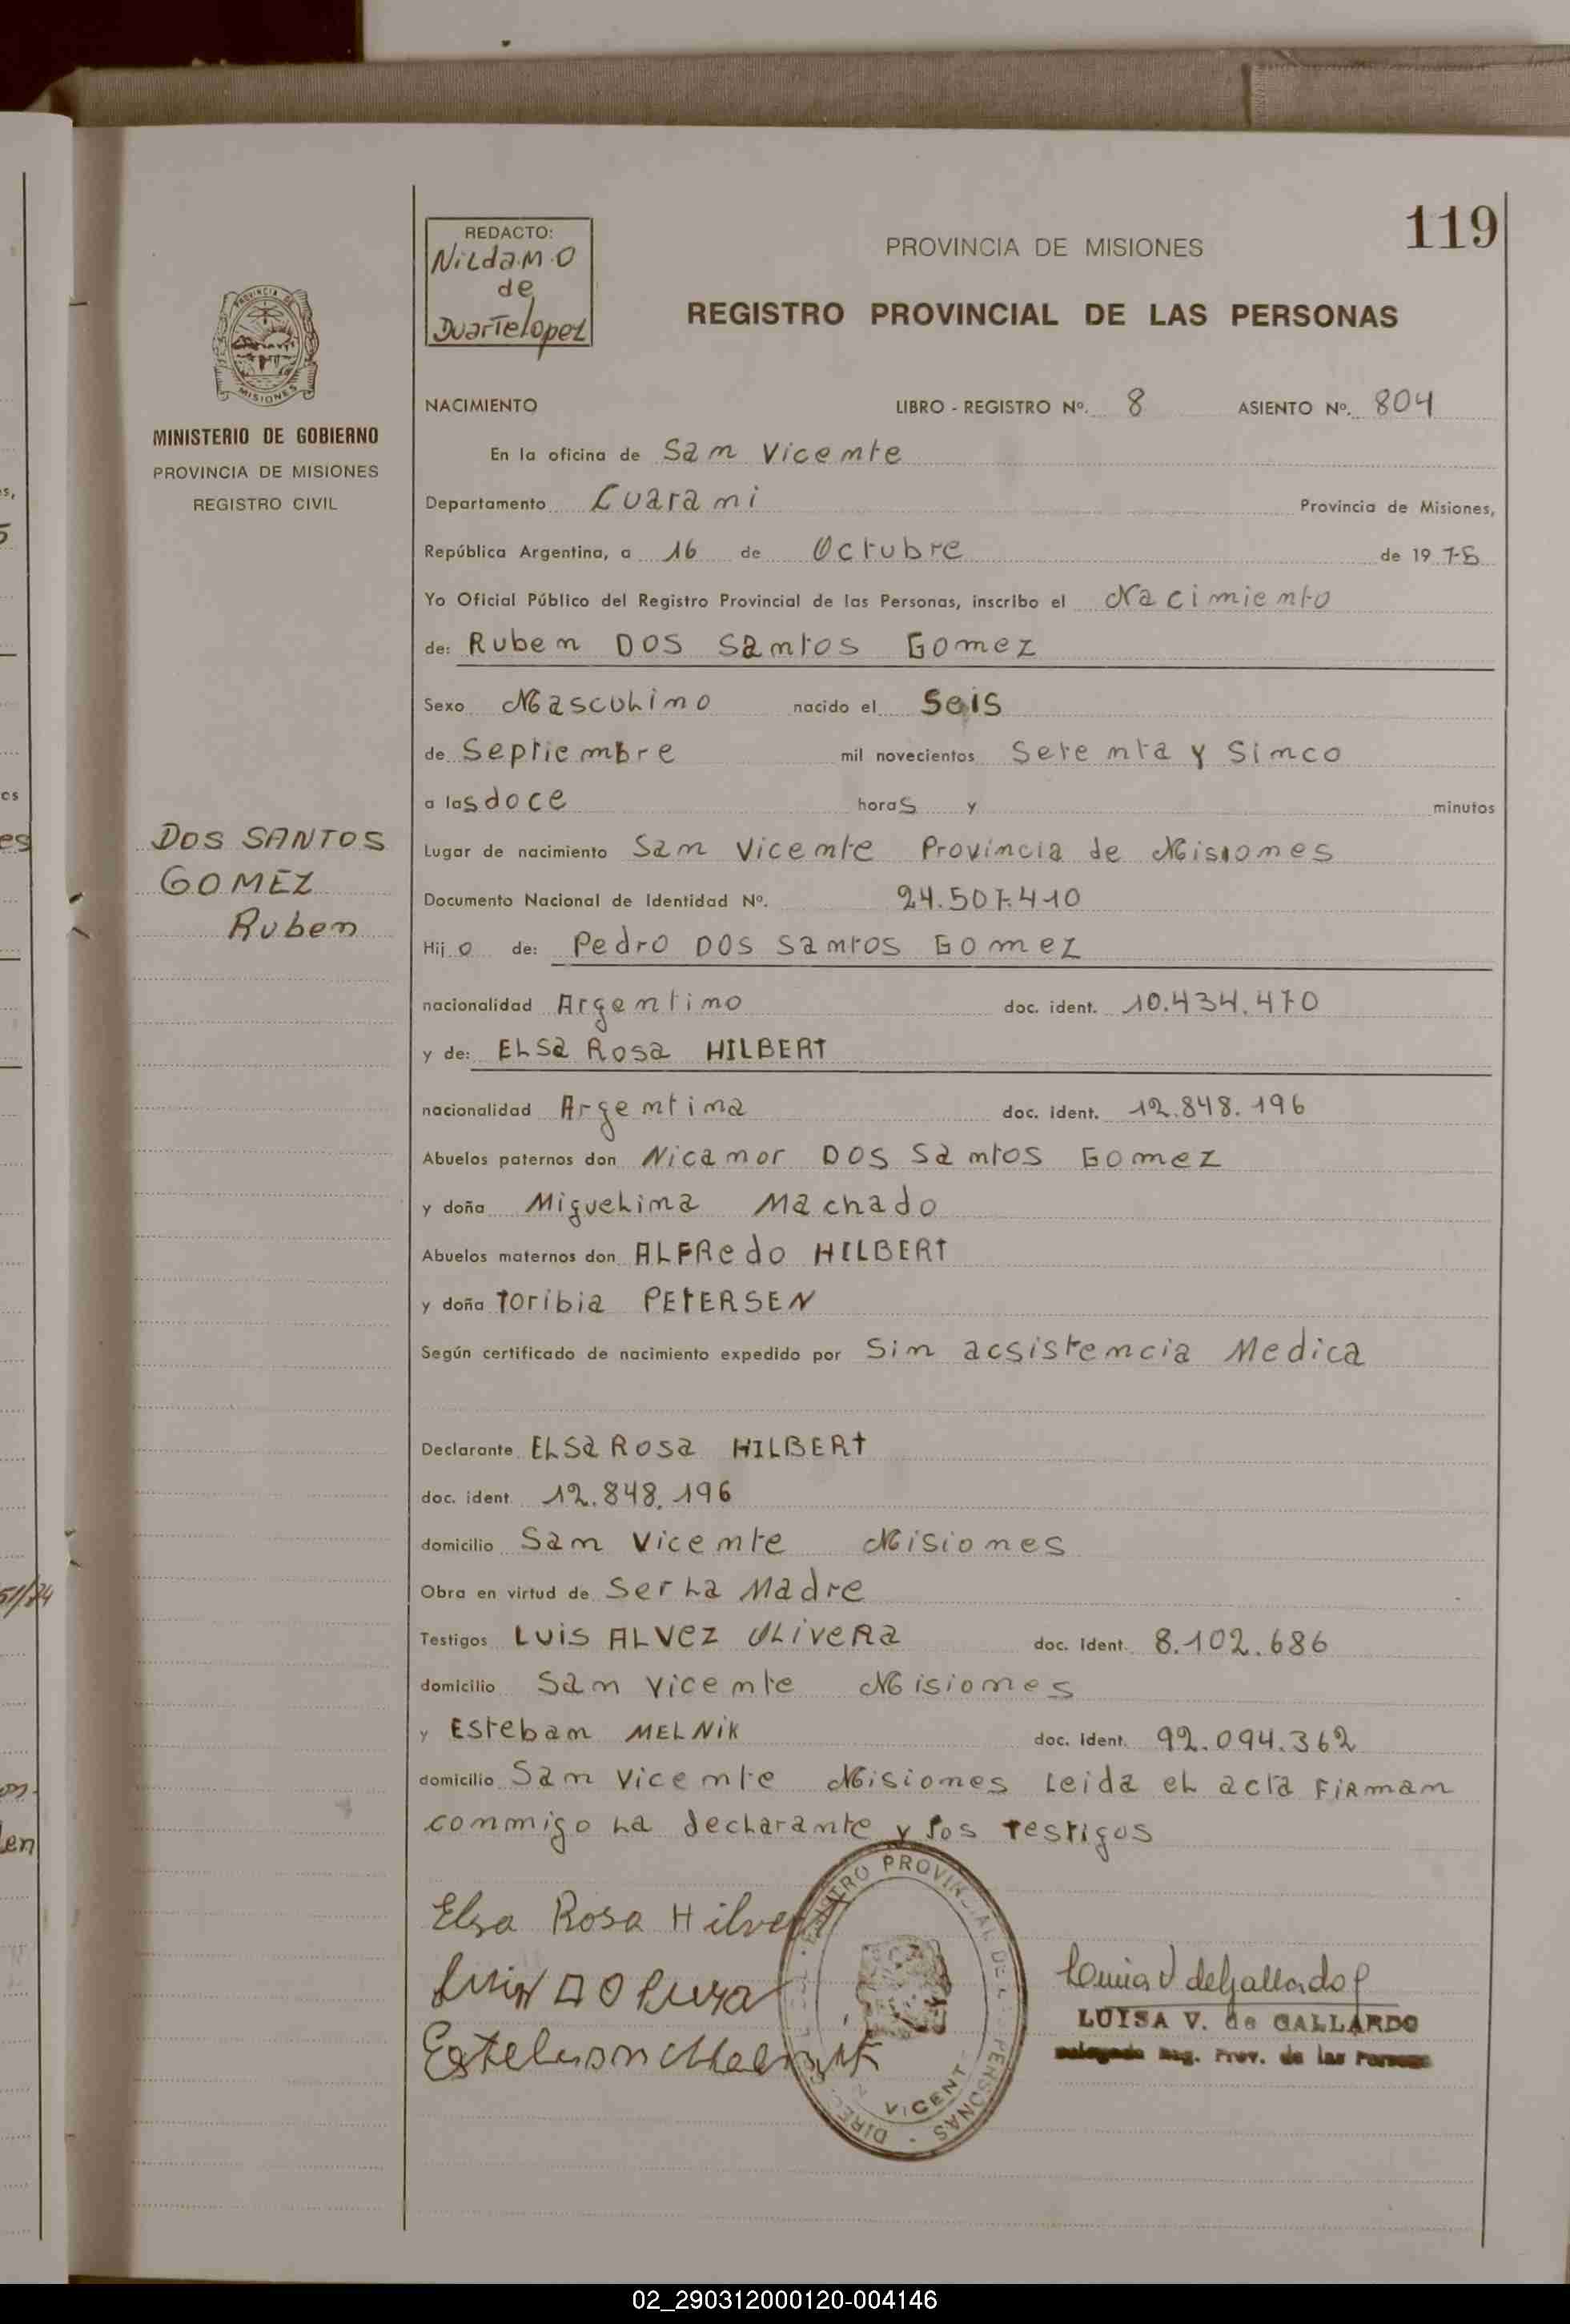 119
REDACTO:
Nilda.M.O
de
Duartelopez
PROVINCIA DE MISIONES
REGISTRO PROVINCIAL DE LAS PERSONAS
MINISTERIO DE GOBIERNO
PROVINCIA DE MISIONES
REGISTRO CIVIL
NACIMIENTO LIBRO - REGISTRO Nº. 8 ASIENTO Nº. 804
En la oficina de San Vicente
Departamento Guarani Provincia de Misiones,
República Argentina, a 16 de Octubre de 19 75
Yo Oficial Público del Registro Provincial de las Personas, inscribo el Nacimiento
de: Ruben DOS Santos Gomez
Sexo Masculino nacido el Seis
de Septiembre mil novecientos Setenta y Sinco
a las doce horas y minutos
DOS SANTOS
GOMEZ
Ruben
Lugar de nacimiento San Vicente Provincia de Misiones
Documento Nacional de Identidad Nº. 24.507.410
Hijo de: Pedro DOS Santos Gomez
nacionalidad Argentino doc. ident. 10.434.470
y de: ELSa Rosa HILBERT
nacionalidad Argentina doc. ident. 12.848.196
Abuelos paternos don Nicanor DOS Santos Gomez
y doña Miguelina Machado
Abuelos maternos don ALFRedo HILBERT
y doña Toribia PETERSEN
Según certificado de nacimiento expedido por Sin acsistencia Medica
Declarante ELSa Rosa HILBERT
doc. ident. 12.848.196
domicilio San Vicente Misiones
Obra en virtud de Ser La Madre
Testigos Luis ALVez OLiveRa doc. Ident. 8.102.686
domicilio San Vicente Misiones
y Esteban MELNiK doc. Ident. 92.094.362
domicilio San Vicente Misiones Leida el acta FiRman
conmigo La declarante y los testigos
Elsa Rosa Hilvert
REGISTRO PROVINCIAL DE LAS PERSONAS
VICENT
Luisa V de Gallardo
LUISA V. de GALLARDO
Delegada Reg. Prov. de las Personas
02_290312000120-004146